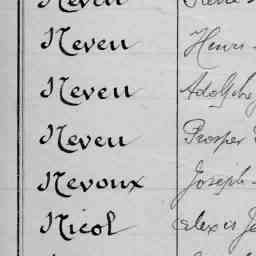 Neveu
Neveu Henri
Neveu Adolphe
Neveu Prosper
Nevoux Joseph
Nicol Alexis